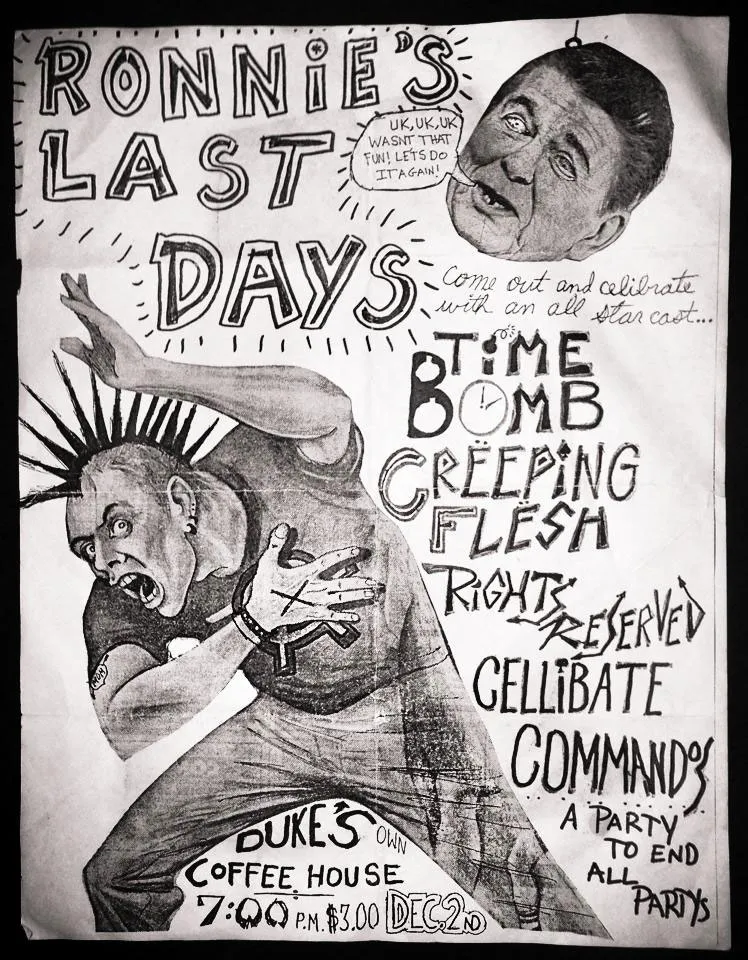 RONNIE'S
LAST
DAYS
UK, UK, UK
WASNT THAT
FUN! LETS DO
IT AGAIN!
Come out and celibrate
with an all star cast...
TiME
BOMB
CREEPING
FLESH
RiGHTS
RESERVED
CELLiBATE
COMMANDOS
A PARTY
TO END
ALL
PARTYS
MDM
DUKE'S OWN
COFFEE HOUSE
7:00 P.M. $3.00 DEC. 2ND